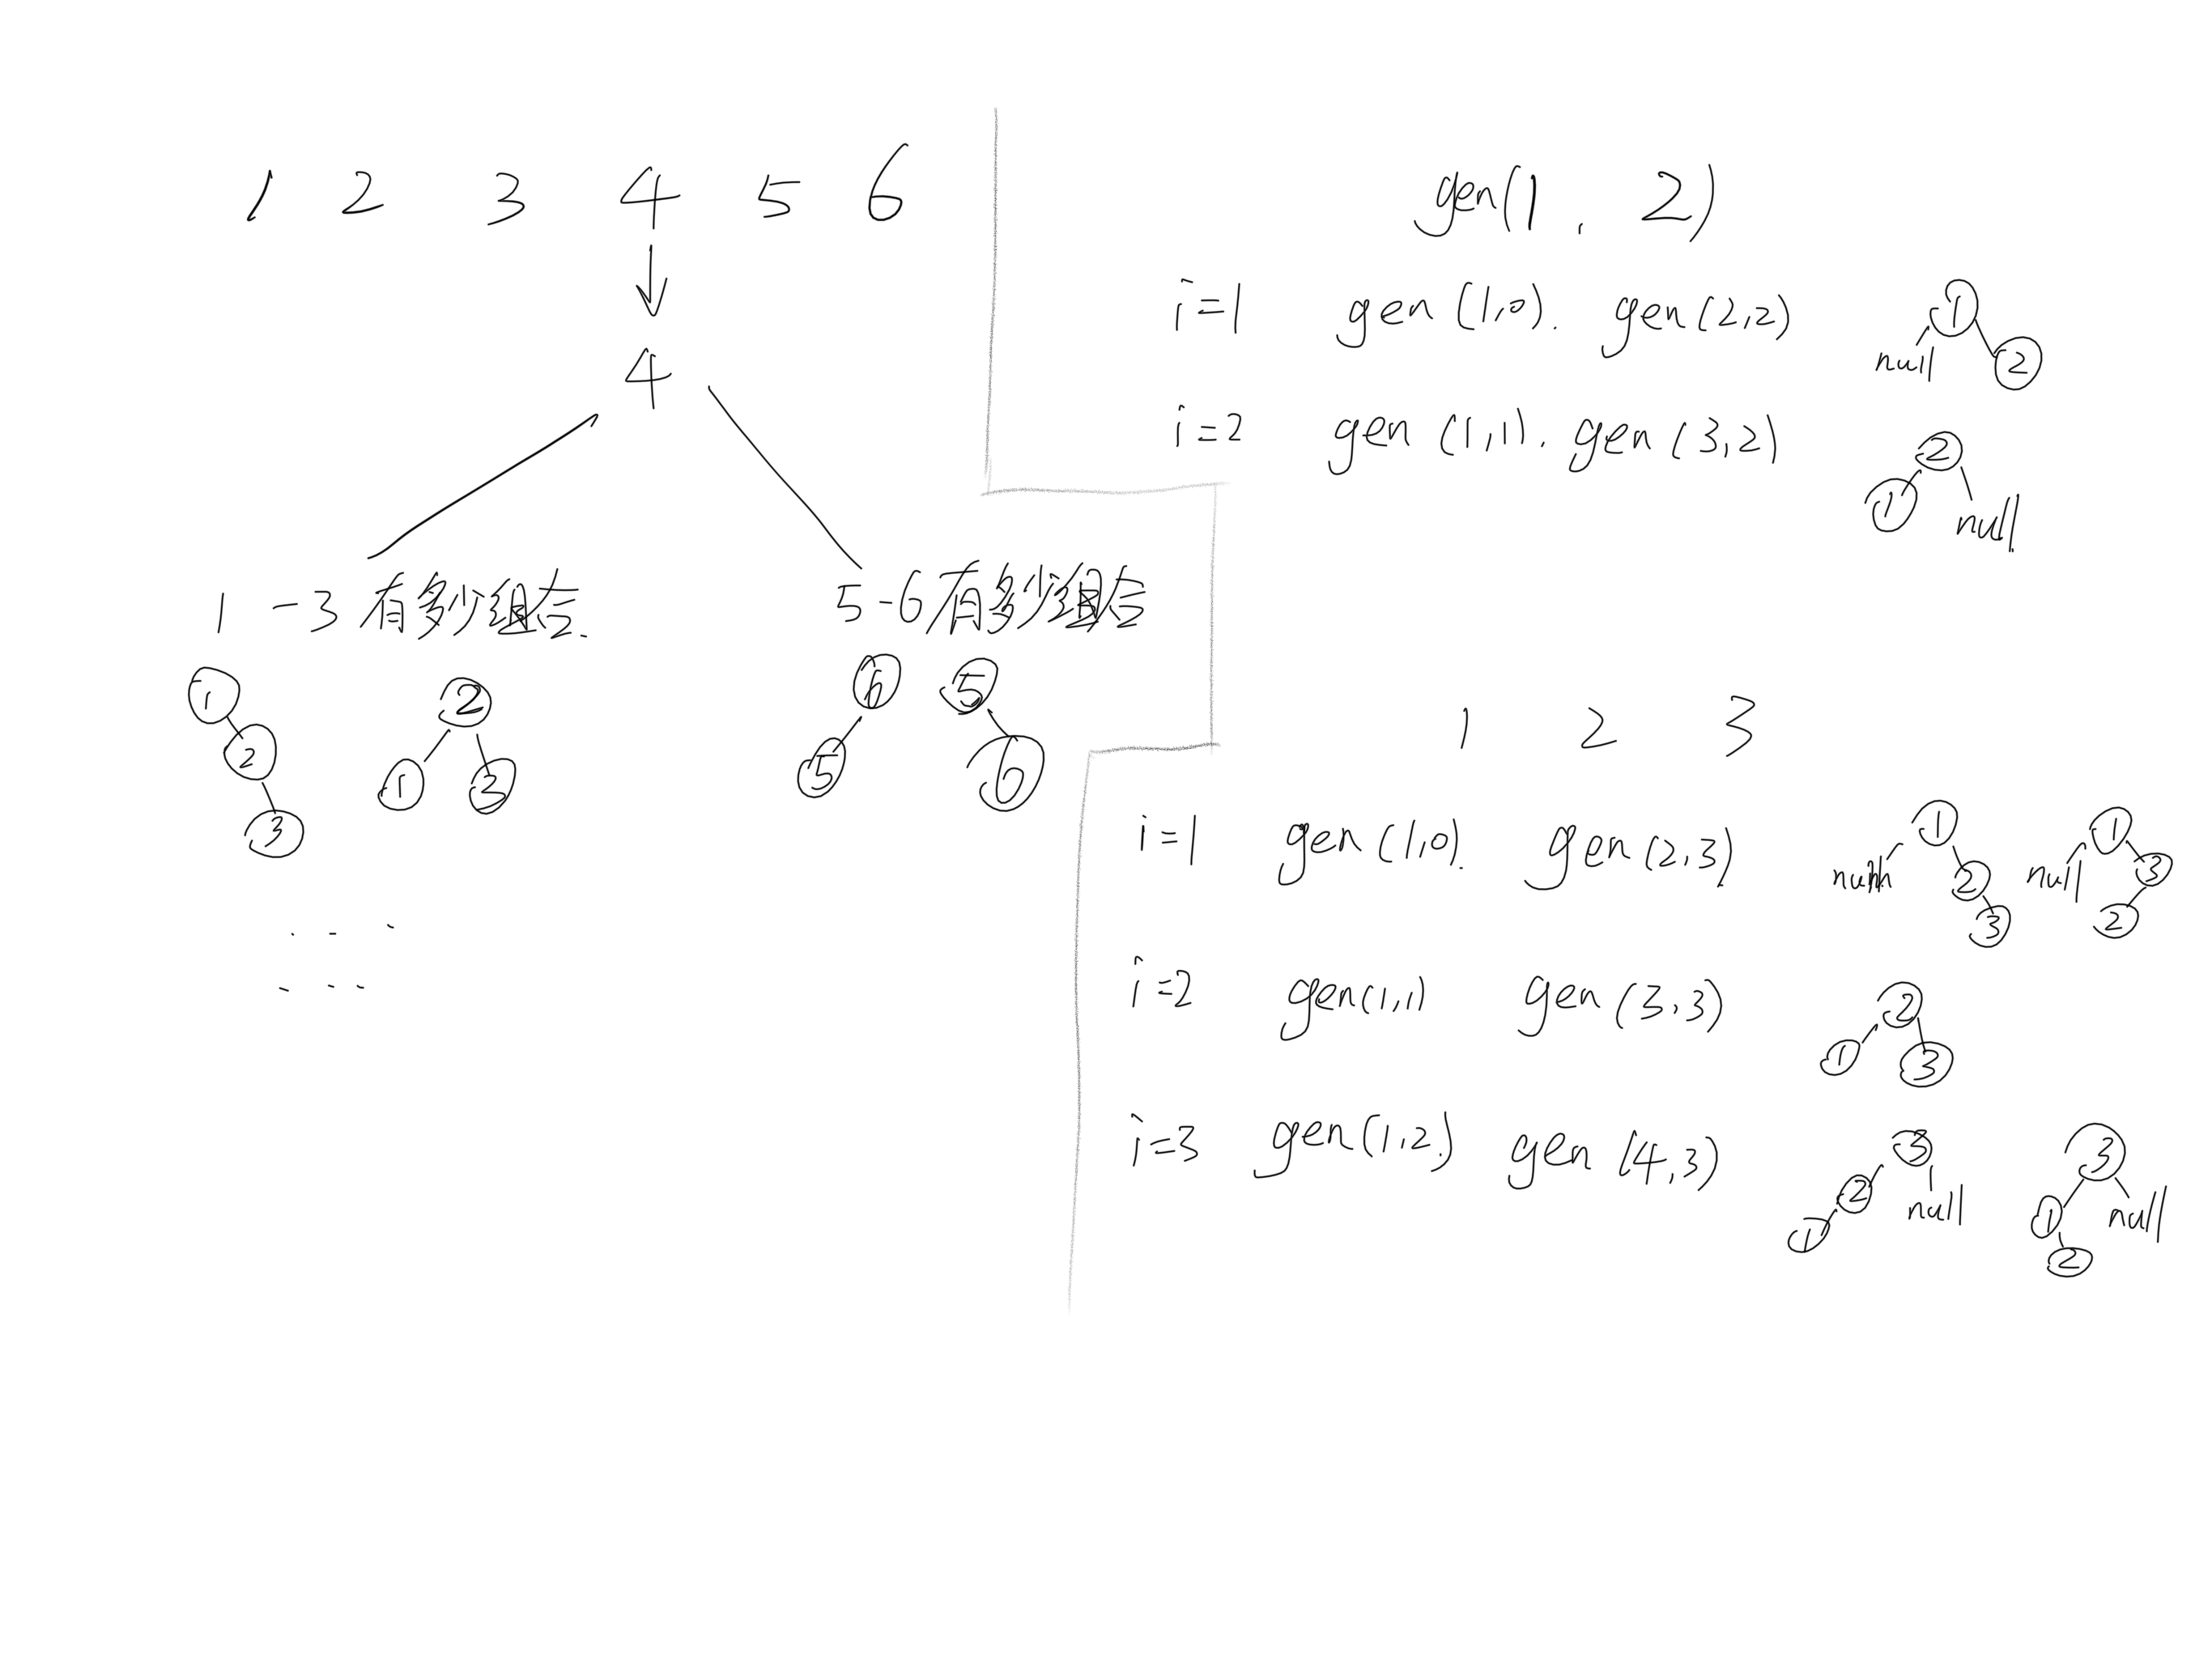 1 2 3 4 5 6
4
1 - 3 有多少组合.
5 - 6 有多少组合
1
2
3
2
1 3
6
5
5
6
. - .
. . .
gen(1, 2)
i=1 gen(1,0). gen(2,2)
1
null 2
i=2 gen(1,1). gen(3,2)
2
1 null
1 2 3
i=1 gen(1,0). gen(2,3)
1
null 2
3
1
null 3
2
i=2 gen(1,1) gen(3,3)
2
1 3
i=3 gen(1,2) gen(4,3)
3
2 null
1
3
1 null
2